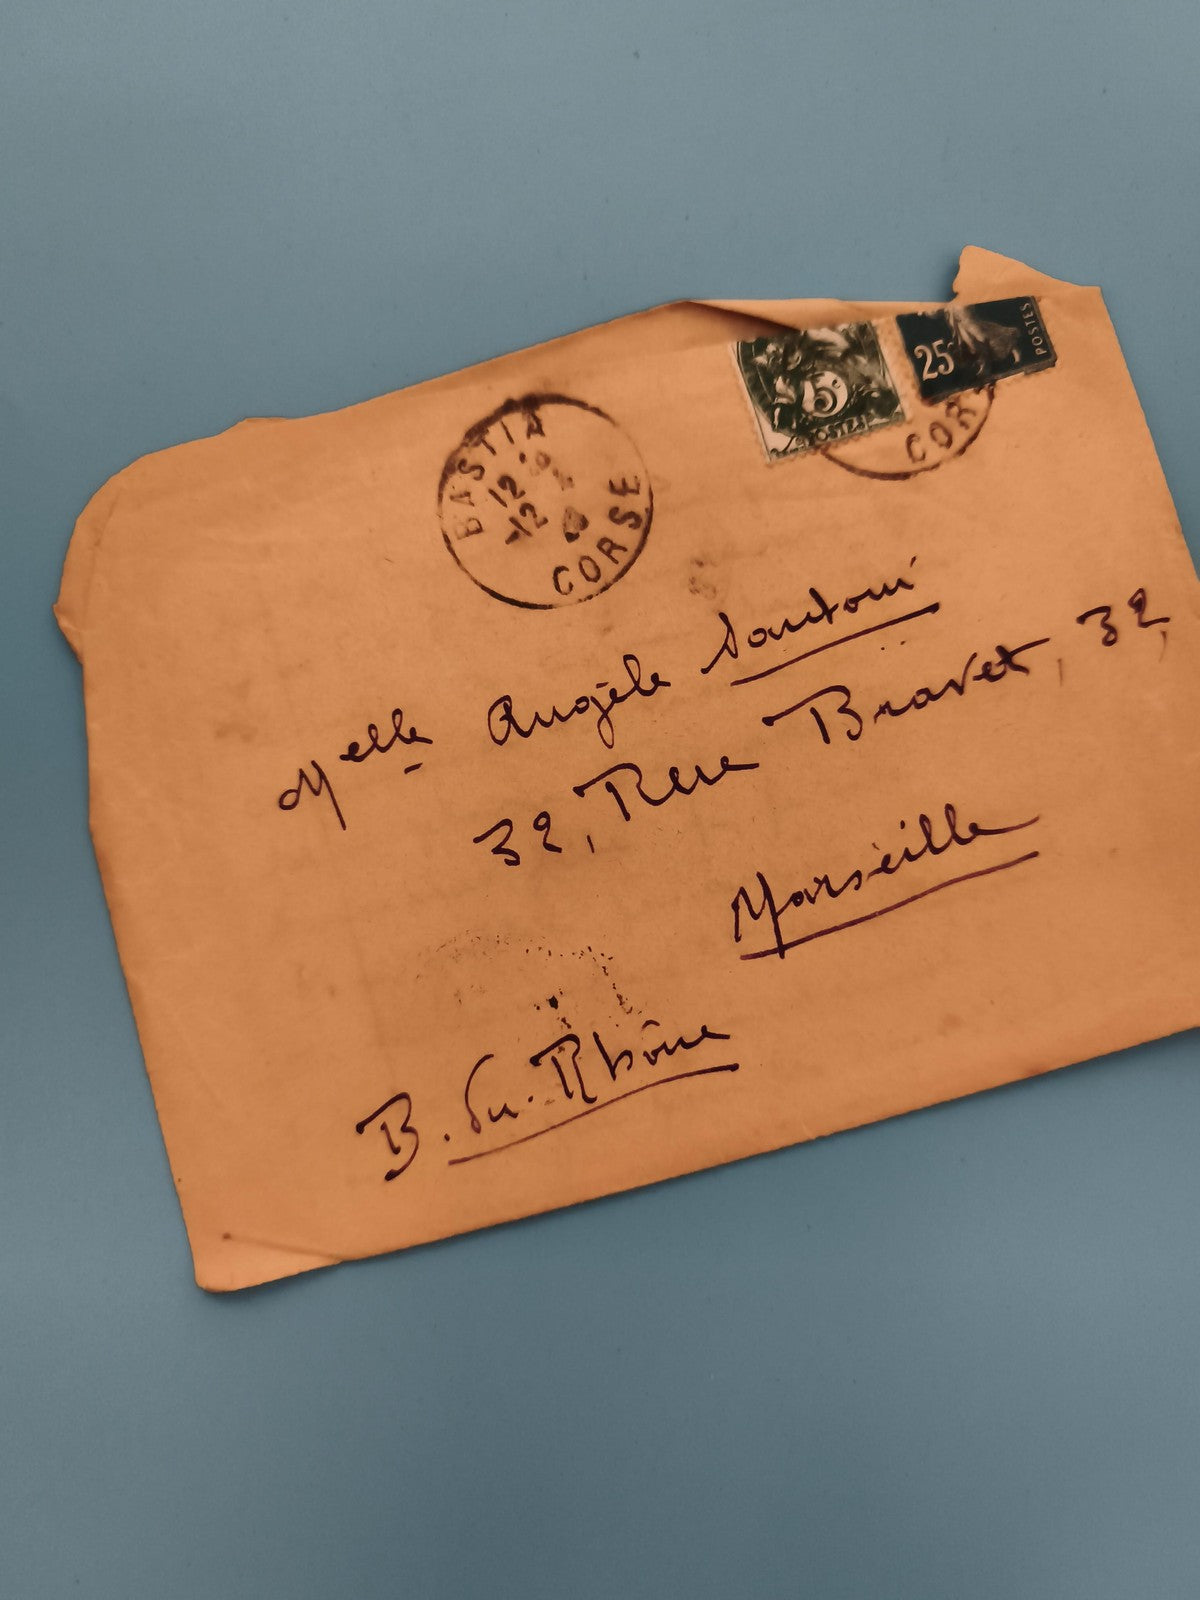 5c
POSTES
25
POSTES
BASTIA
12
12
CORSE
COR
Melle Angèle Santoni
32, Rue Bravet, 32,
Marseille
B. du-Rhône